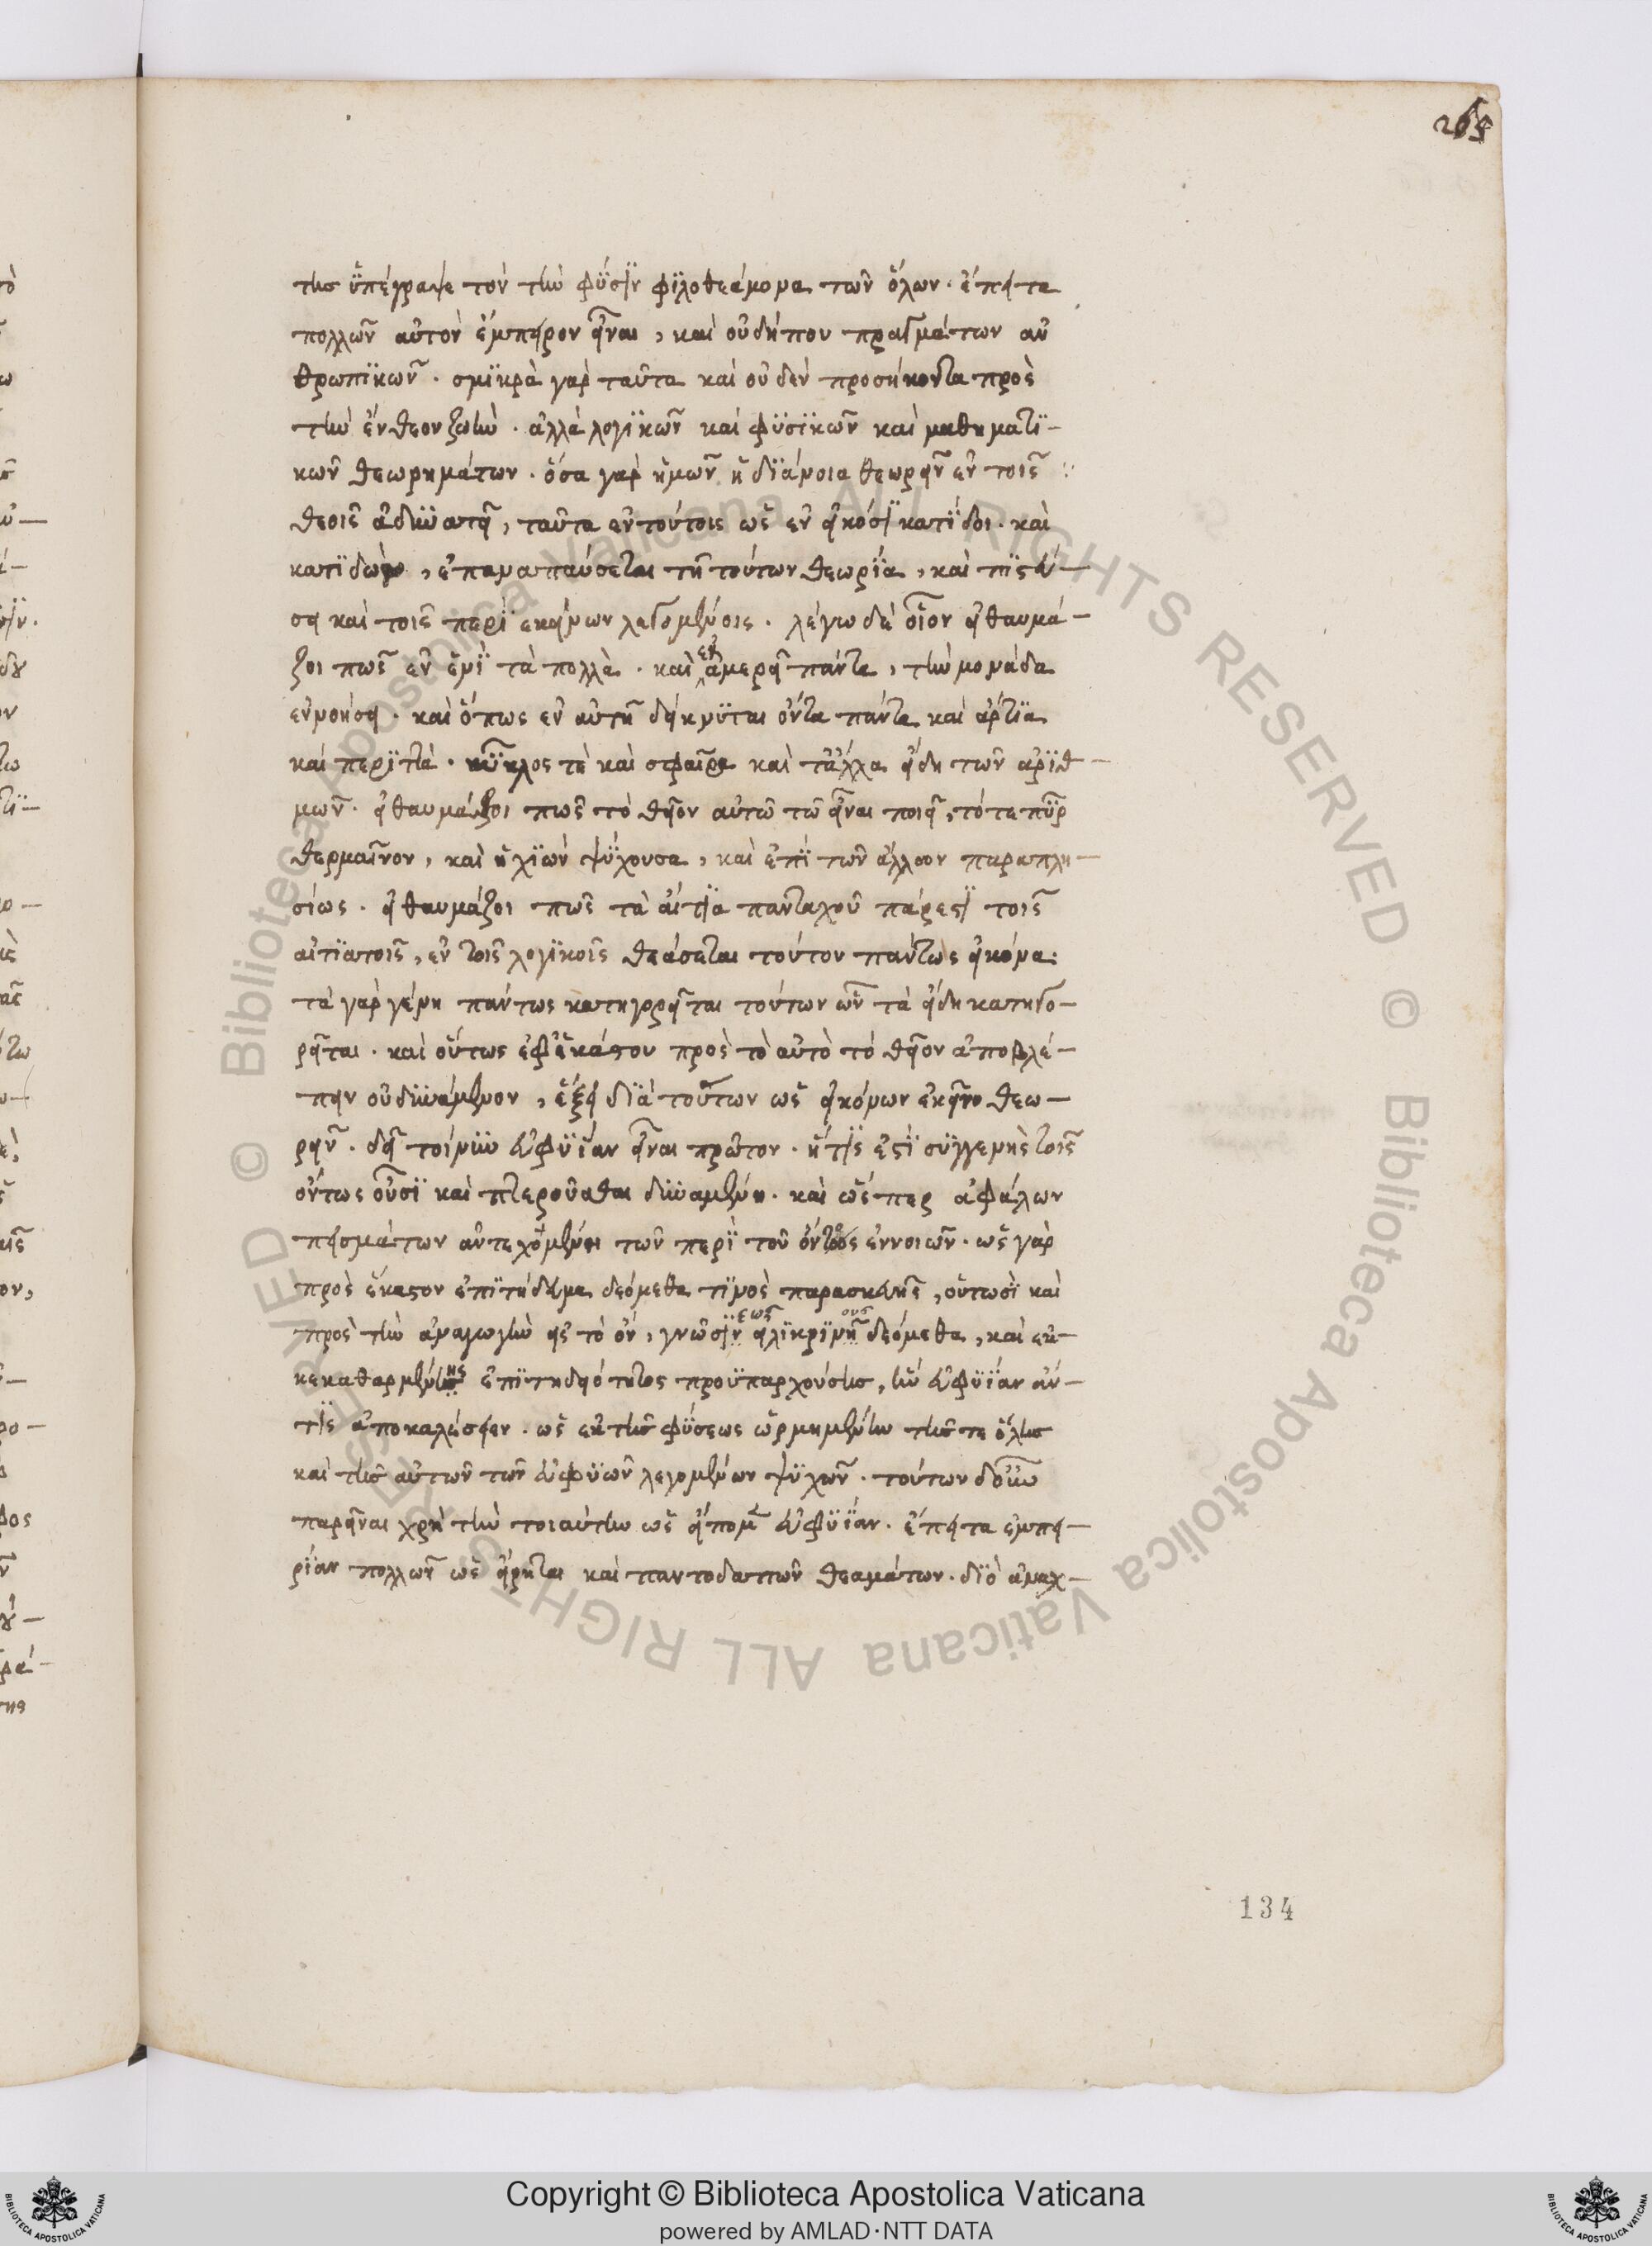 265
της ὑπέγραψε τὸν τὴν φύσϊν φϊλοθεάμονα τῶν ὅλων. ἔπειτα
πολλῶν αὐτὸν ἔμπειρον εἶναι, καὶ οὐ δήπου πραγμάτων ἀν
θρωπϊκῶν. σμϊκρὰ γὰρ ταῦτα καὶ οὐδὲν προσήκοντα πρὸς
τὴν ἔνθεον ζωὴν. ἀλλὰ λογϊκῶν καὶ φϋσϊκῶν καὶ μαθηματϊ-
κῶν θεωρημάτων. ὅσα γὰρ ἡμῶν ἡ δϊάνοια θεωρεῖν ἐν τοῖς
θεοῖς ἀδϋνατεῖ, ταῦτα ἐν τούτοις ὡς ἐν εἰκόσϊ κατΐδοι. καὶ
κατϊδὼν, ἐπαναπαύσεται τῆ τούτων θεωρΐα, καὶ πϊστεύ-
σει καὶ τοῖς περὶ ἐκείνων λεγομένοις. λέγω δὲ οἷον εἰ θαυμά-
ζοι πῶς ἐν ἑνϊ τὰ πολλὰ. καὶ ἐν ἀμερεῖ πάντα, τὴν μονάδα
ἐννοήσει. καὶ ὅπως ἐν αὐτῆ δείκνϋται ὄντα πάντα καὶ ἄρτϊα
καὶ περϊττὰ. κύκλος τὲ καὶ σφαῖρα καὶ τἄλλα εἴδη τῶν ἀρϊθ-
μῶν. εἰ θαυμάζοι πῶς τὸ θεῖον αὐτῶ τῶ εἶναι ποιεῖ, τό τε πῦρ
θερμαῖνον, καὶ ἡ χϊὼν ψύχουσα, καὶ ἐπὶ τῶν ἄλλων παραπλη-
σίως. εἰ θαυμάζοι πῶς τὰ αἴτϊα πανταχοῦ πάρεστϊ τοῖς
αἰτϊατοῖς, ἐν τοῖς λογϊκοῖς θεάσεται τούτου πάντως εἰκόνα:
τὰ γὰρ γένη πάντως κατηγορεῖται τούτων ὧν τὰ εἴδη κατηγο-
ρεῖται. καὶ οὕτως ἐφ' ἑκάστου πρὸς τὸ αὐτὸ τὸ θεῖον ἀποβλέ-
πειν οὐ δϋνάμενον, ἕξει δϊὰ τούτων ὡς εἰκόνων ἐκεῖνο θεω-
ρεῖν. δεῖ τοίνϋν εὐφϋΐαν εἶναι πρῶτον. ἥτϊς ἐστὶ σϋγγενὴς τοῖς
ὄντως οὖσϊ καὶ πτεροῦσθαι δϋναμένη. καὶ ὥσπερ ἀσφάλων
πεισμάτων ἀντεχομένη τῶν περὶ τοῦ ὄντος ἐννοιῶν. ὡς γὰρ
πρὸς ἕκαστον ἐπϊτήδευμα δεόμεθα τϊνὸς παρασκευῆς, οὑτωσϊ καὶ
πρὸς τὴν ἀναγωγὴν εἰς τὸ ὂν, γνώσεως εἰλϊκρϊνοῦς δεόμεθα, καὶ ἐκ-
κεκαθαρμένης ἐπϊτηδειότητος προϋπαρχούσης, ἣν εὐφϋΐαν ἄν-
τϊς ἀποκαλέσειεν. ὡς ἐκ τῆς φύσεως ὡρμημένην τῆς τε ὅλης
καὶ τῆς αὐτῶν τῶν εὐφϋῶν λεγομένων ψϋχῶν. τούτων δ' οὖν
παρεῖναι χρὴ τὴν τοιαύτην ὡς εἴπομεν εὐφϋΐαν. ἔπειτα ἐμπει-
ρΐαν πολλῶν ὡς εἴρηται καὶ παντοδαπῶν θεαμάτων. δϊὸ ἀναχ-
134
Copyright © Biblioteca Apostolica Vaticana
powered by AMLAD·NTT DATA
© Biblioteca Apostolica Vaticana ALL RIGHTS RESERVED © Biblioteca Apostolica Vaticana ALL RIGHTS RESERVED